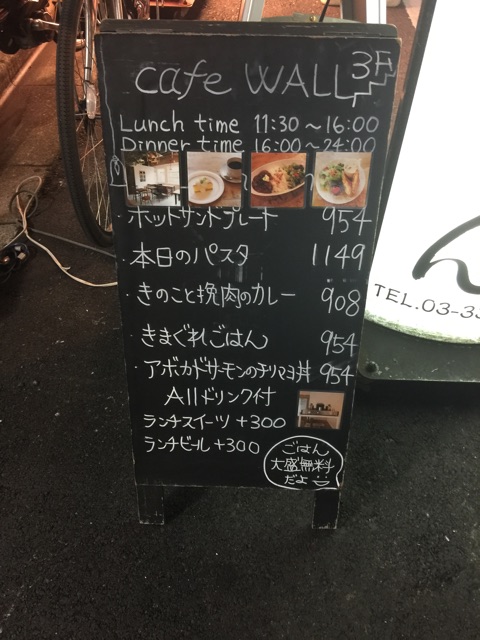 cafe WALL 3F
Lunch time 11:30～16:00
Dinner time 16:00～24:00
・ホットサンドプレート 954
・本日のパスタ 1149
・きのこと挽肉のカレー 908
・きまぐれごはん 954
・アボカドサーモンのチリマヨ丼 954
Allドリンク付
ランチスイーツ +300
ランチビール +300
ごはん
大盛無料
だよ
ん
TEL.03-33